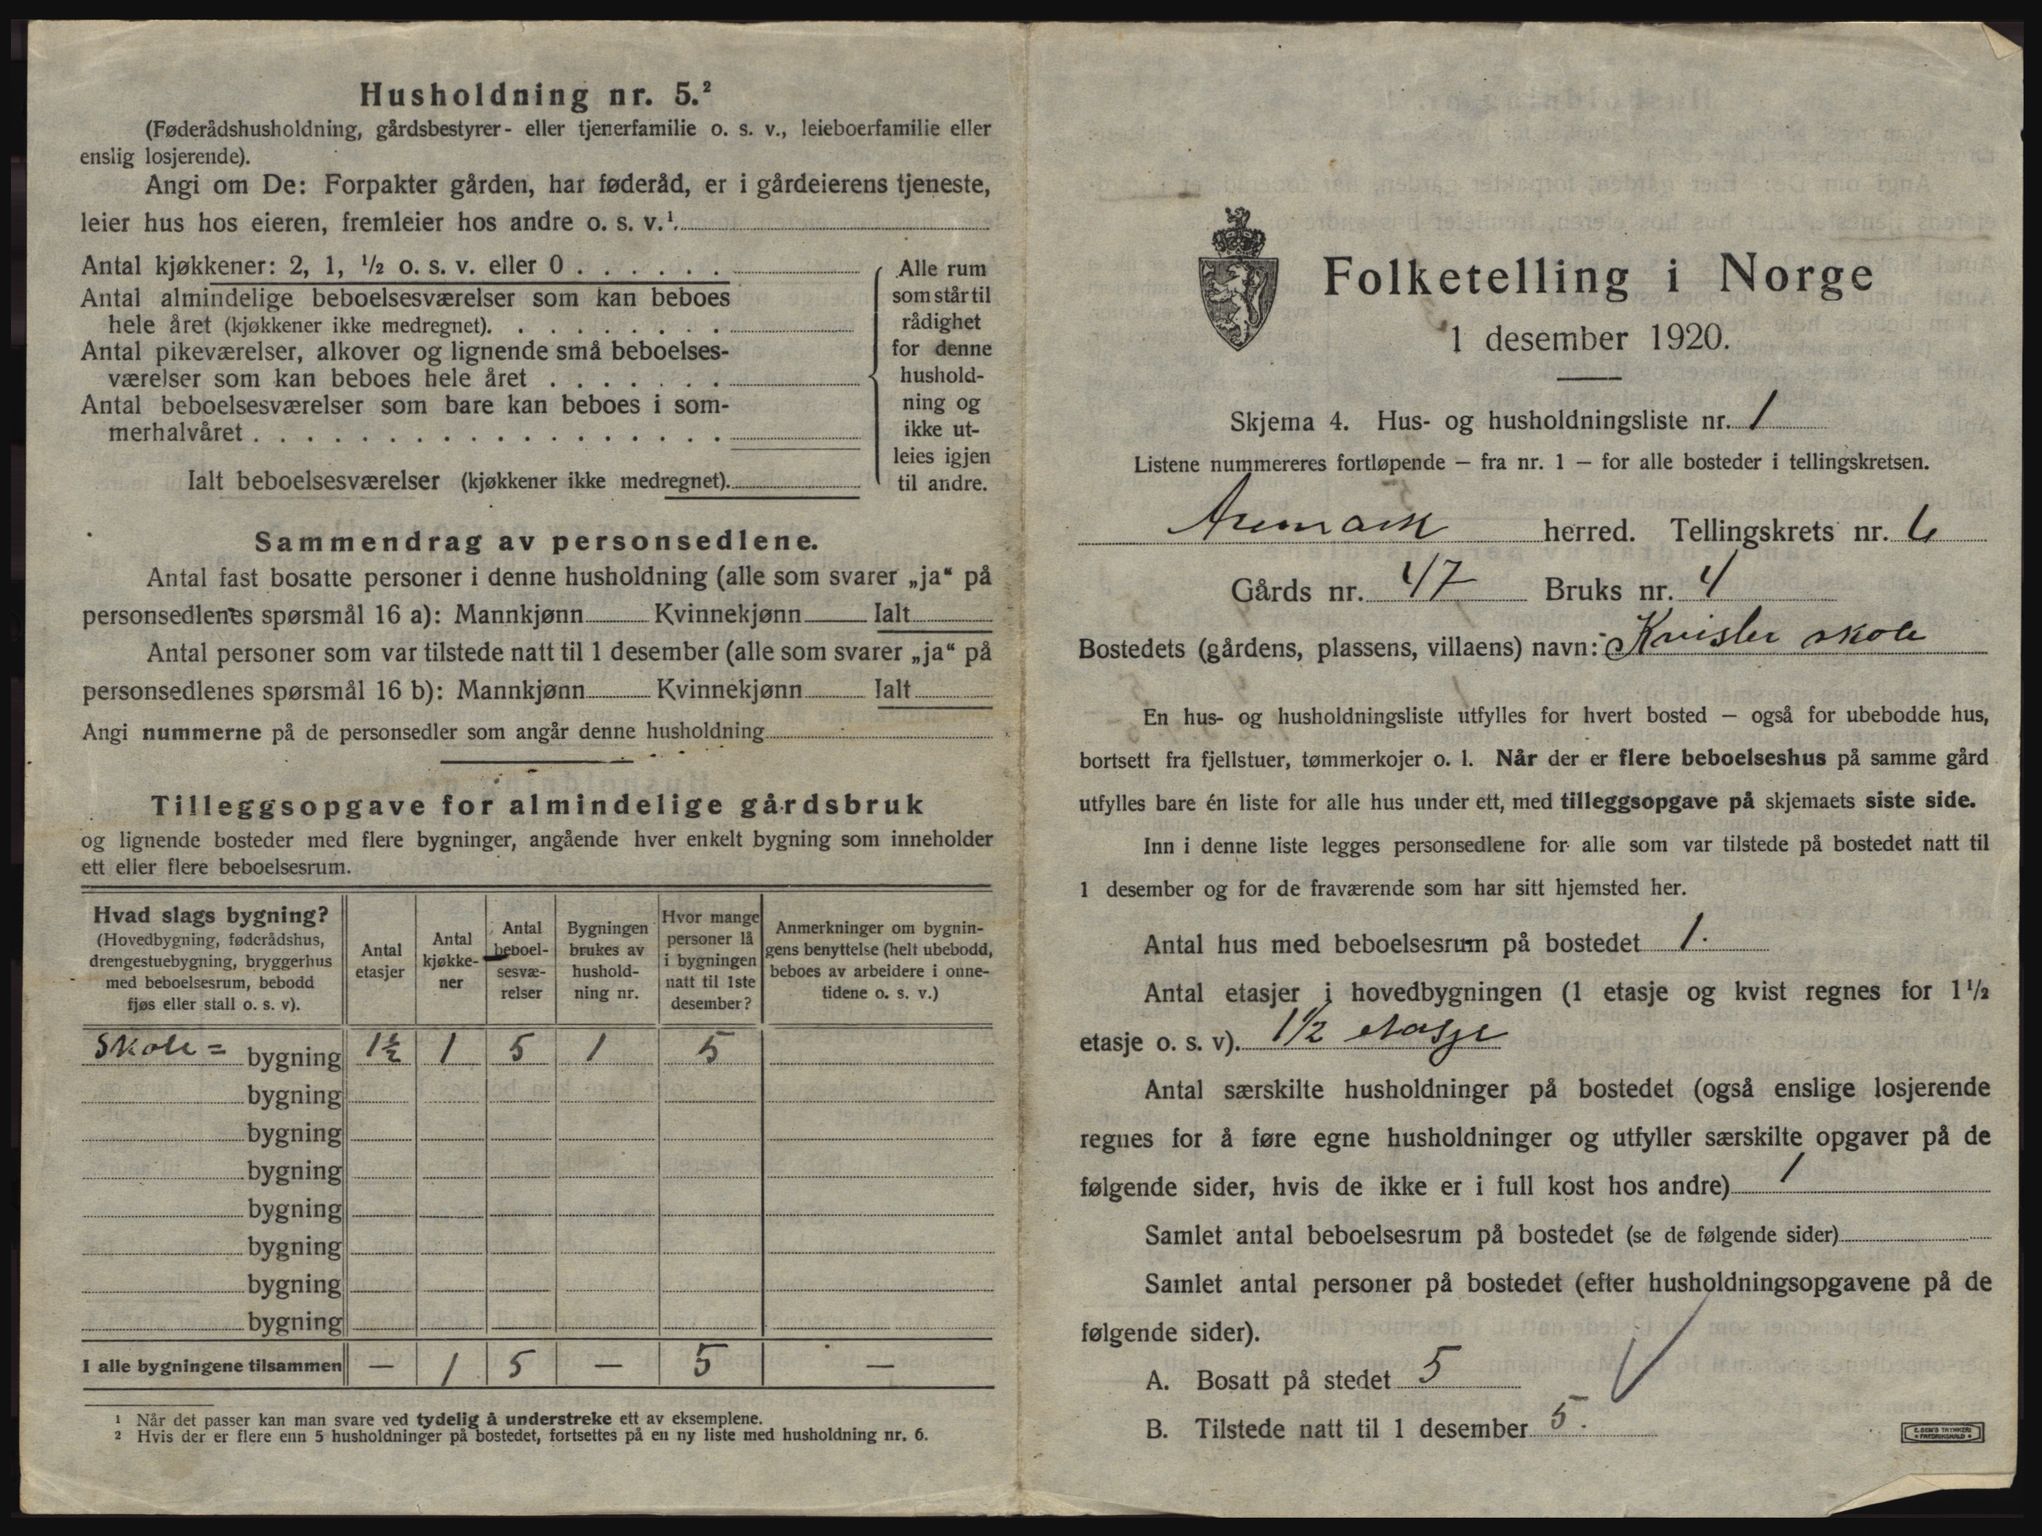 Husholdning nr. 5.²
(Føderådshusholdning, gårdsbestyrer- eller tjenerfamilie o. s. v., leieboerfamilie eller
enslig losjerende).
Angi om De: Forpakter gården, har føderåd, er i gårdeierens tjeneste,
leier hus hos eieren, fremleier hos andre o. s. v.¹.
Antal kjøkkener: 2, 1, ½ o. s. v. eller 0 . . . . . .
Antal almindelige beboelsesværelser som kan beboes
hele året (kjøkkener ikke medregnet). . . . . . . . .
Antal pikeværelser, alkover og lignende små beboelses-
værelser som kan beboes hele året . . . . . . .
Antal beboelsesværelser som bare kan beboes i som-
merhalvåret . . . . . . . . . . . . . . . . . .
Ialt beboelsesværelser (kjøkkener ikke medregnet).
Alle rum
som står til
rådighet
for denne
hushold-
ning og
ikke ut-
leies igjen
til andre.
Sammendrag av personsedlene.
Antal fast bosatte personer i denne husholdning (alle som svarer „ja“ på
personsedlenes spørsmål 16 a): Mannkjønn Kvinnekjønn Ialt
Antal personer som var tilstede natt til 1 desember (alle som svarer „ja“ på
personsedlenes spørsmål 16 b): Mannkjønn Kvinnekjønn Ialt
Angi nummerne på de personsedler som angår denne husholdning
Tilleggsopgave for almindelige gårdsbruk
og lignende bosteder med flere bygninger, angående hver enkelt bygning som inneholder
ett eller flere beboelsesrum.
Hvad slags bygning?
(Hovedbygning, føderådshus,
drengestuebygning, bryggerhus
med beboelsesrum, bebodd
fjøs eller stall o. s. v).
Antal
etasjer
Antal
kjøkke-
ner
Antal
beboel-
sesvæ-
relser
Bygningen
brukes av
hushold-
ning nr.
Hvor mange
personer lå
i bygningen
natt til 1ste
desember?
Anmerkninger om bygnin-
gens benyttelse (helt ubebodd,
beboes av arbeidere i onne-
tidene o. s. v.)
Skole= bygning 1½ 1 5 1 5
bygning
bygning
bygning
bygning
bygning
bygning
bygning
I alle bygningene tilsammen — 1 5 — 5 —
¹ Når det passer kan man svare ved tydelig å understreke ett av eksemplene.
² Hvis der er flere enn 5 husholdninger på bostedet, fortsettes på en ny liste med husholdning nr. 6.
Folketelling i Norge
1 desember 1920.
Skjema 4. Hus- og husholdningsliste nr. 1
Listene nummereres fortløpende – fra nr. 1 – for alle bosteder i tellingskretsen.
Aremark herred. Tellingskrets nr. 6
Gårds nr. 47 Bruks nr. 4
Bostedets (gårdens, plassens, villaens) navn: Kvisler skole
En hus- og husholdningsliste utfylles for hvert bosted – også for ubebodde hus,
bortsett fra fjellstuer, tømmerkojer o. l. Når der er flere beboelseshus på samme gård
utfylles bare én liste for alle hus under ett, med tilleggsopgave på skjemaets siste side.
Inn i denne liste legges personsedlene for alle som var tilstede på bostedet natt til
1 desember og for de fraværende som har sitt hjemsted her.
Antal hus med beboelsesrum på bostedet 1.
Antal etasjer i hovedbygningen (1 etasje og kvist regnes for 1½
etasje o. s. v). 1½ etasje
Antal særskilte husholdninger på bostedet (også enslige losjerende
regnes for å føre egne husholdninger og utfyller særskilte opgaver på de
følgende sider, hvis de ikke er i full kost hos andre) 1
Samlet antal beboelsesrum på bostedet (se de følgende sider)
Samlet antal personer på bostedet (efter husholdningsopgavene på de
følgende sider).
A. Bosatt på stedet 5
B. Tilstede natt til 1 desember 5.